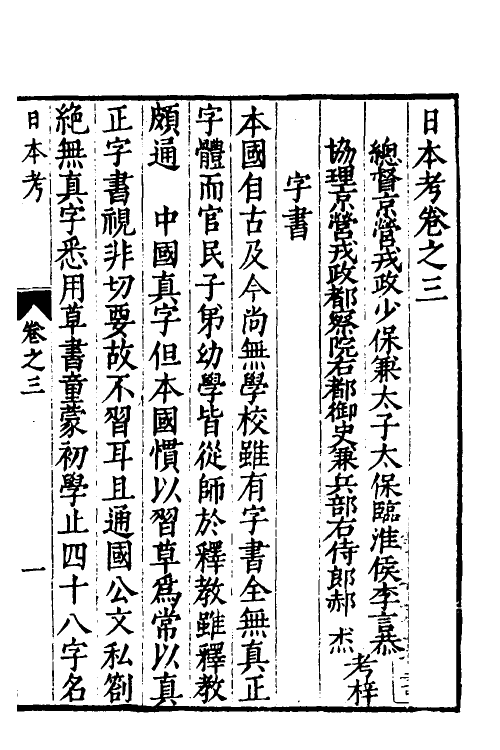 日本考卷之三
總督京營戎政少保兼太子太保臨淮侯李言恭
協理京營戎政都察院右都御史兼兵部右侍郎郝杰
考梓
字書
本國自古及今尚無學校雖有字書全無真正
字體而官民子弟幼學皆從師於釋教雖釋教
頗通　中國真字但本國慣以習草爲常以真
正字書視非切要故不習耳且通國公文私劄
絕無真字悉用草書童蒙初學止四十八字名
日本考
卷之三
一